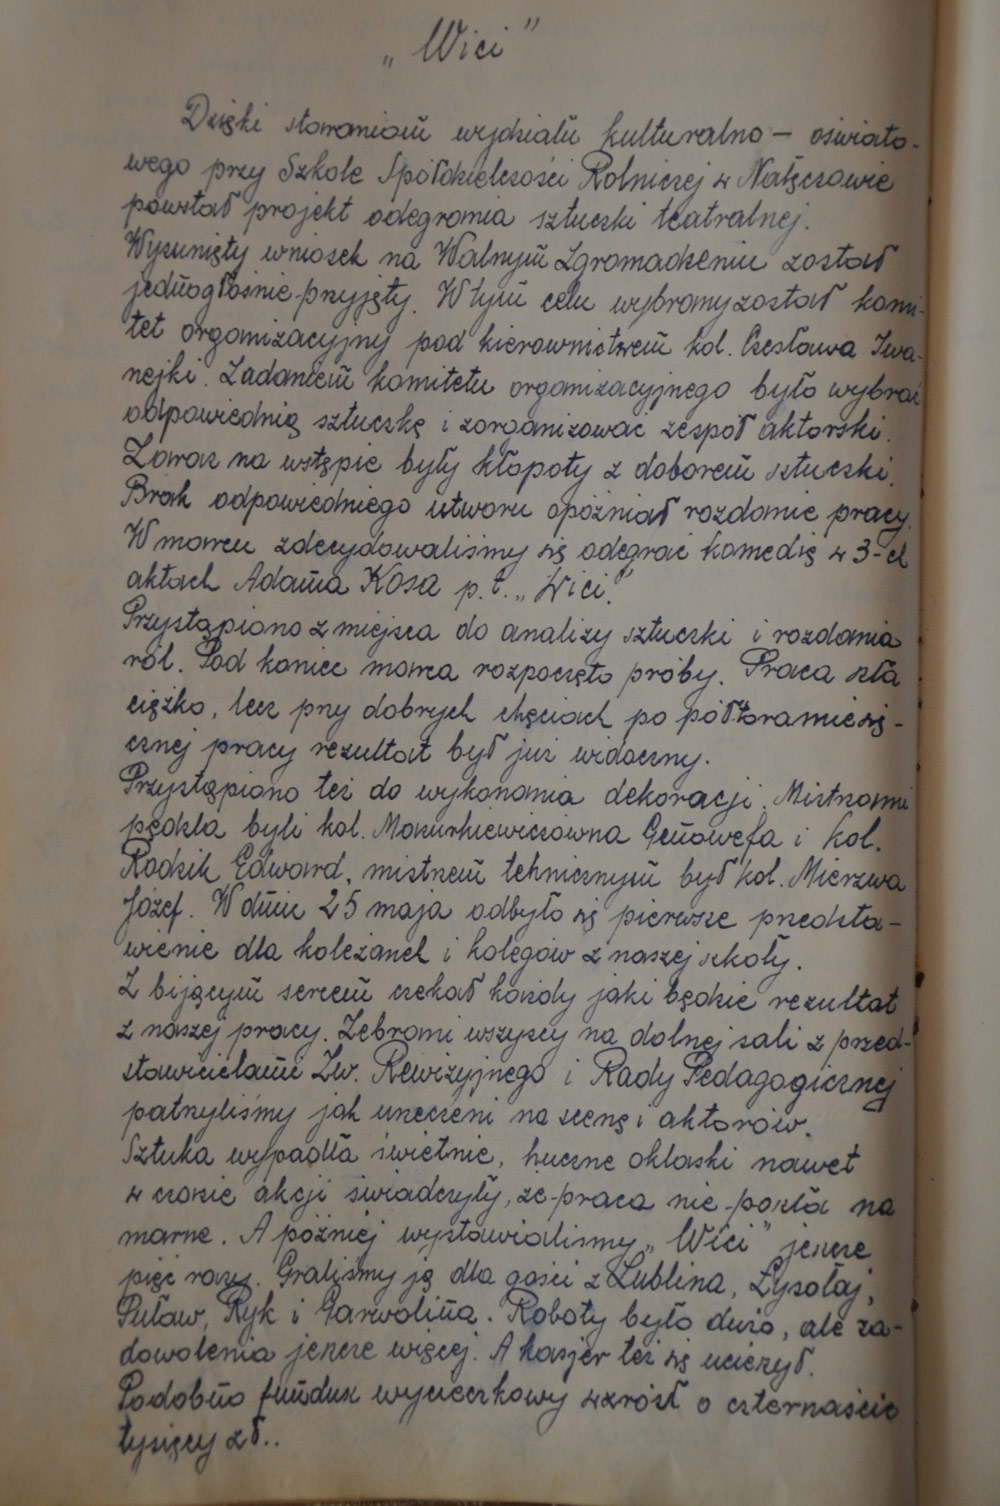 „Wici”
Dzięki staraniom wydziału kulturalno – oświato-
wego przy Szkole Spółdzielczości Rolniczej w Nałęczowie
powstał projekt odegrania sztuczki teatralnej.
Wysunięty wniosek na Walnym Zgromadzeniu został
jednogłośnie przyjęty. W tym celu wybrany został komi-
tet organizacyjny pod kierownictwem kol. Czesława Iwa-
nejki. Zadaniem komitetu organizacyjnego było wybrać
odpowiednią sztuczkę i zorganizować zespół aktorski.
Zaraz na wstępie były kłopoty z doborem sztuczki.
Brak odpowiedniego utworu opóźniał rozdanie pracy.
W marcu zdecydowaliśmy się odegrać komedię w 3-ch
aktach Adama Kosa p.t. „Wici”.
Przystąpiono z miejsca do analizy sztuczki i rozdania
ról. Pod koniec marca rozpoczęto próby. Praca szła
ciężko, lecz przy dobrych chęciach po półtoramiesię-
cznej pracy rezultat był już widoczny.
Przystąpiono też do wykonania dekoracji. Mistrzami
pędzla byli kol. Mazurkiewiczówna Genowefa i kol.
Radzik Edward, mistrzem tehnicznym był kol. Mierzwa
Józef. W dniu 25 maja odbyło się pierwsze przedsta-
wienie dla koleżanek i kolegów z naszej szkoły.
Z bijącym sercem czekał każdy jaki będzie rezultat
z naszej pracy. Zebrani wszyscy na dolnej sali z przed-
stawicielami Zw. Rewizyjnego i Rady Pedagogicznej
patrzyliśmy jak urzeczeni na scenę i aktorów.
Sztuka wypadła świetnie, huczne oklaski nawet
w czasie akcji świadczyły, że praca nie poszła na
marne. A później wystawialiśmy „Wici” jeszcze
pięć razy. Graliśmy ją dla gości z Lublina, Łysołaj,
Puław, Ryk i Garwolina. Roboty było dużo, ale za-
dowolenia jeszcze więcej. A kasjer też się ucieszył.
Podobno fundusz wycieczkowy wzrósł o czternaście
tysięcy zł..